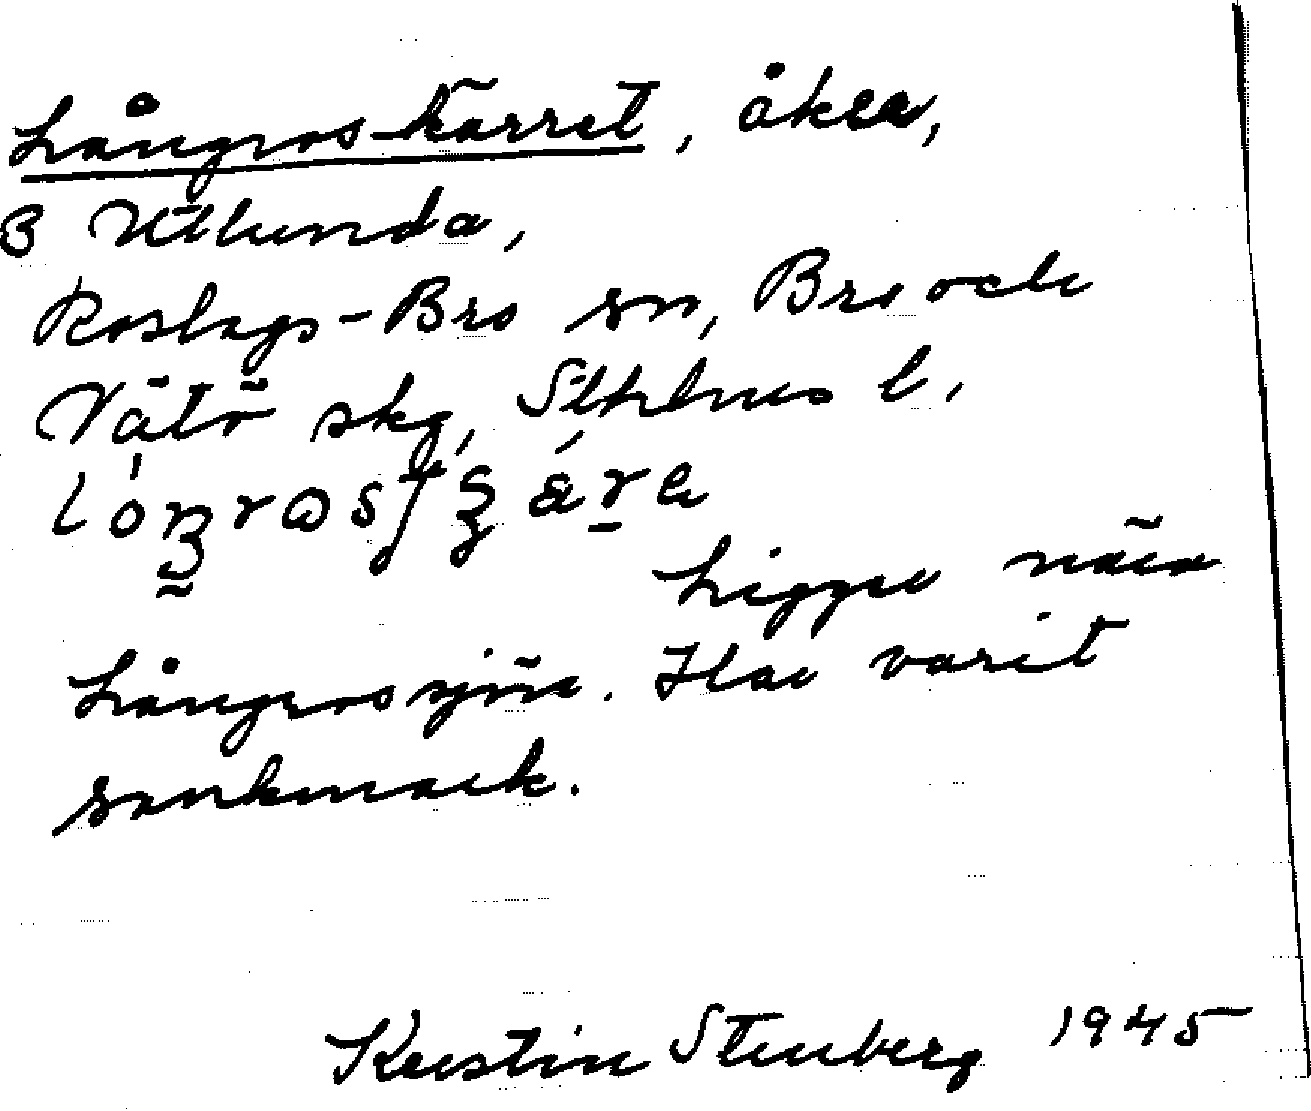 Långroskärret, åker,
B Utlunda,
Roslags-Bro sn, Bro och
Vätö skg, Sthlms l.
Ligger när
Långrossjön. Har varit
sankmark.
Kerstin Stenberg 1945